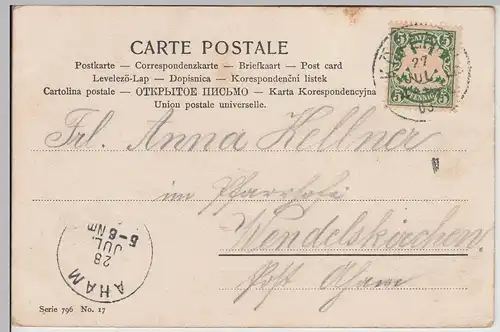 CARTE POSTALE
Postkarte — Correspondenzkarte — Briefkaart — Post card
Levelező-Lap — Dopisnica — Korespondenční listek
Cartolina postale — ОТКРЫТОЕ ПИСЬМО — Karta Korespondencyjna
Union postale universelle.
BAYERN
5 5
5 PFENNIG 5
27
JUL.
Frl. Anna Kellner
im Pfarrhofe
Wendelskirchen.
Post Aham
AHAM
28
JUL.
5-6 Nm
Serie 796 No. 17